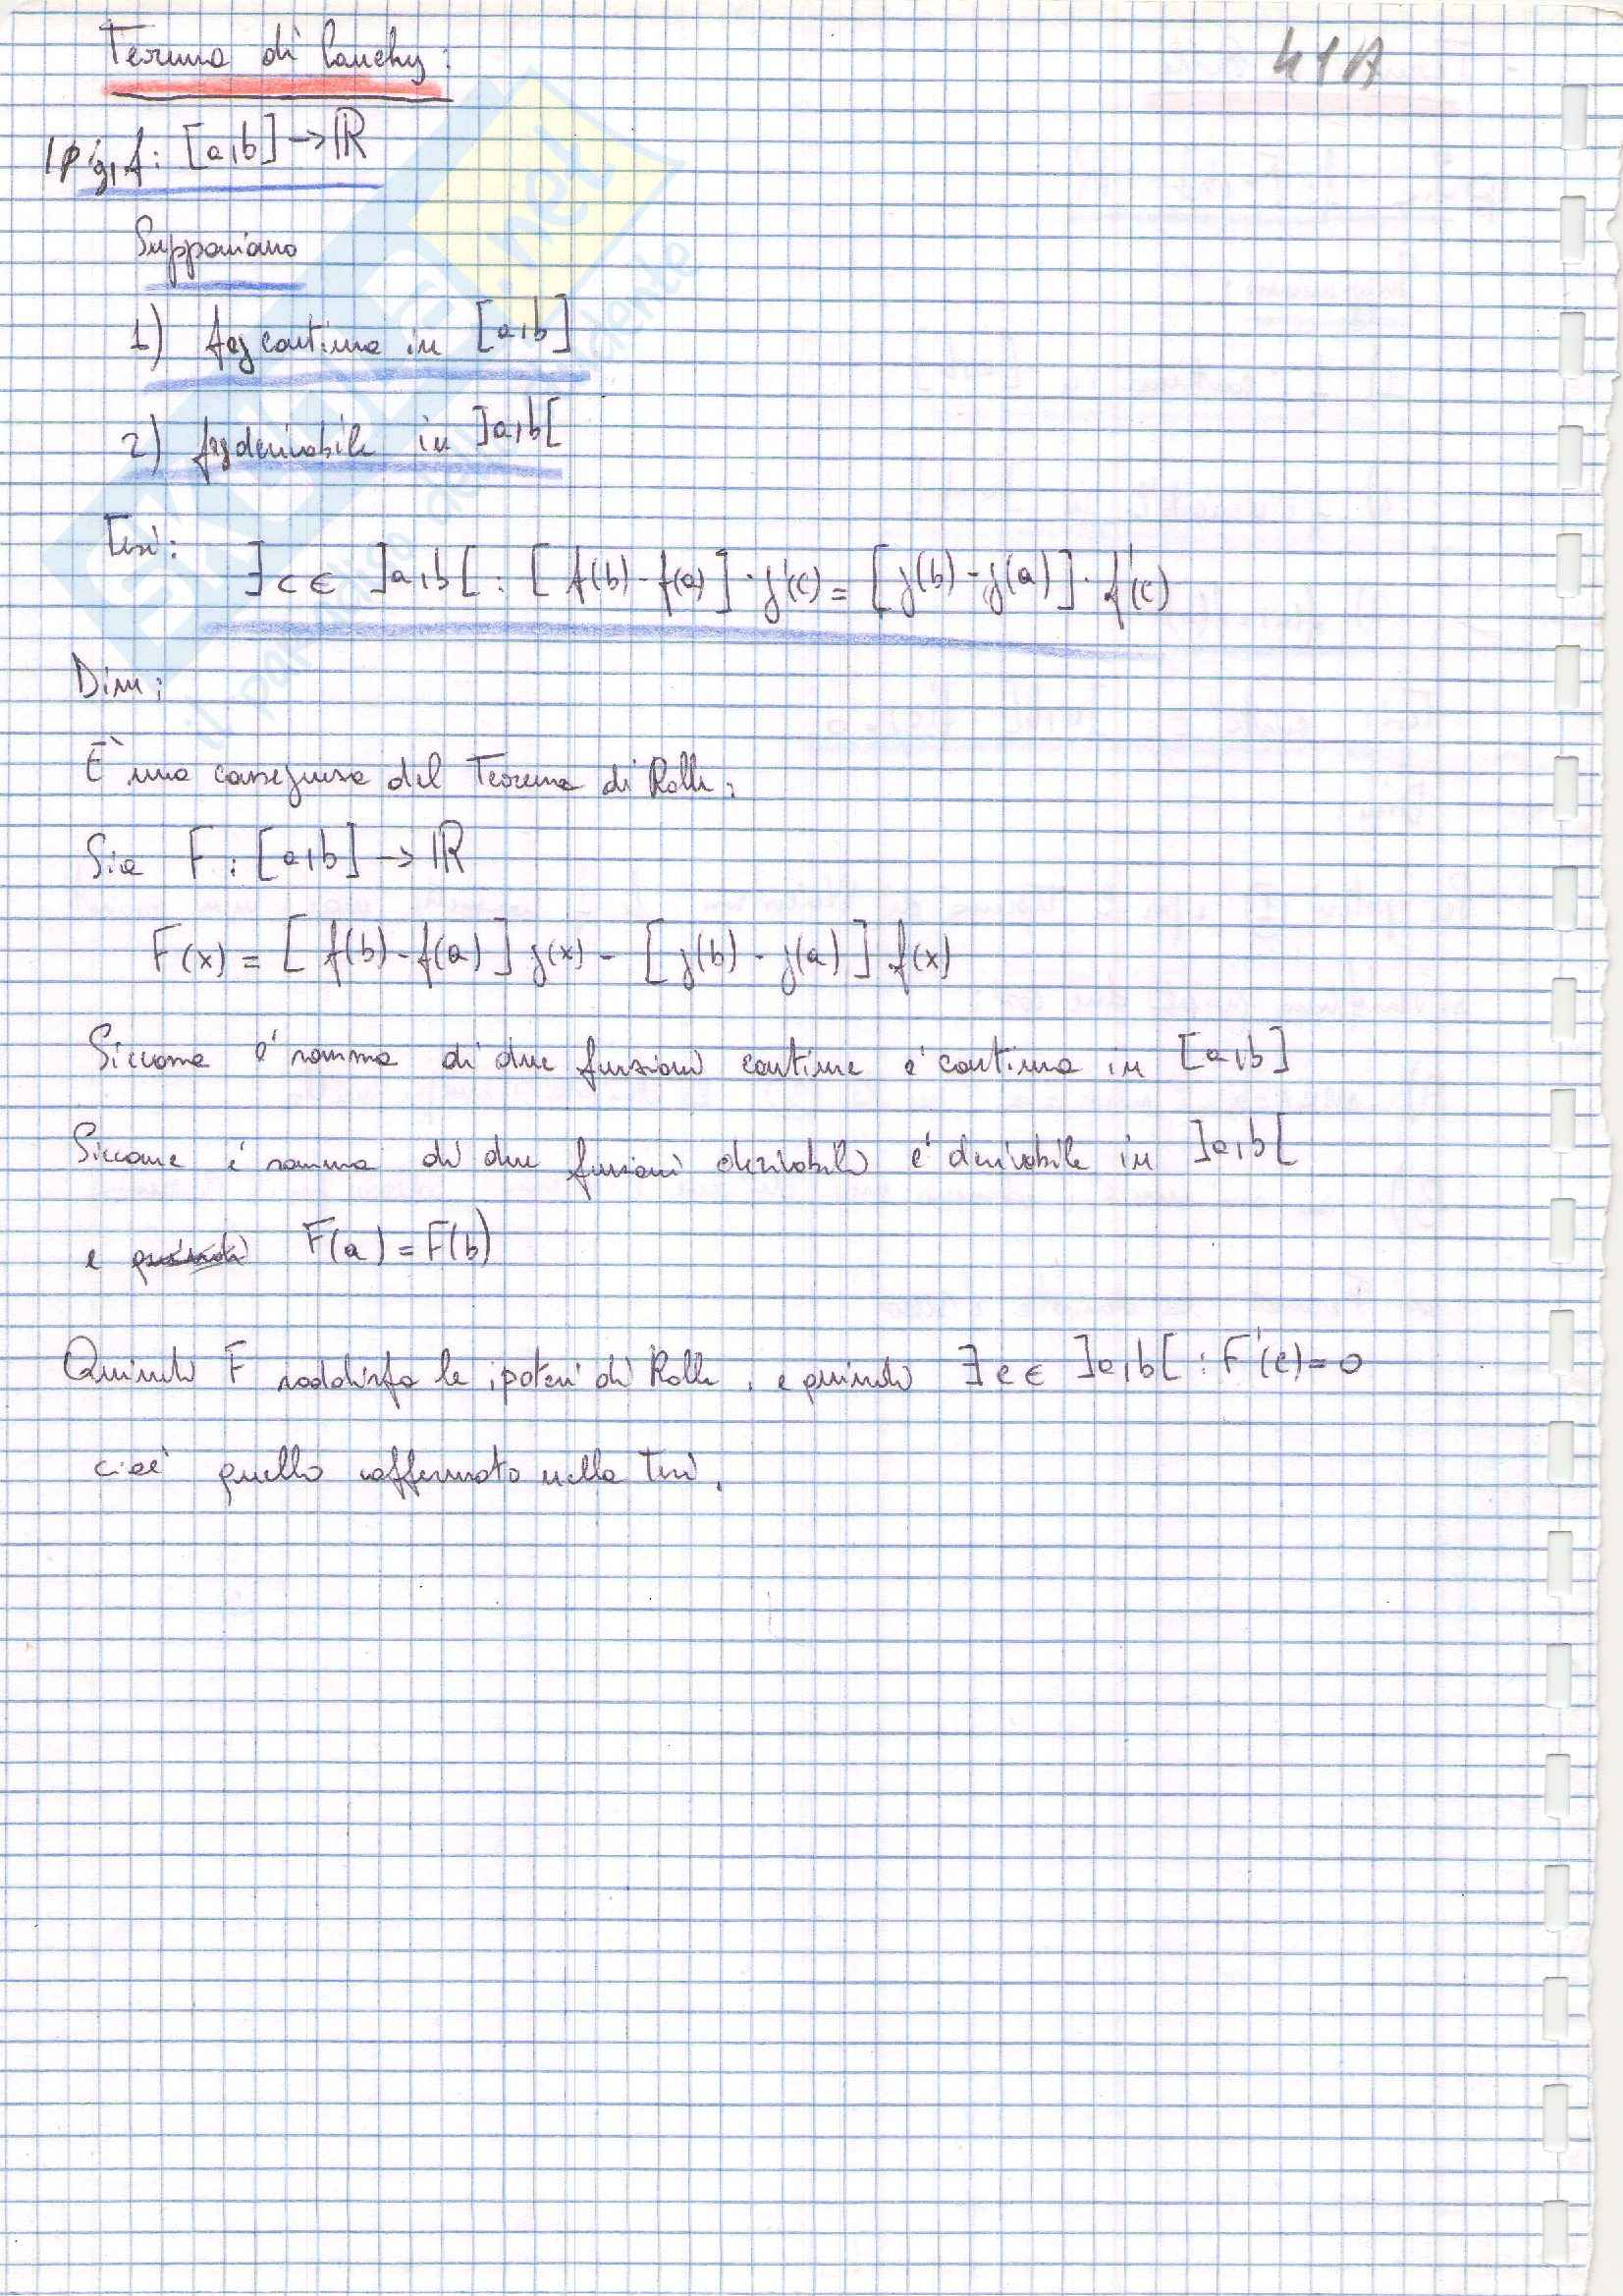 Teorema di Cauchy:
41A
Ip: g, f: [a,b] → ℝ
Supponiamo
1) f e g continua in [a,b]
2) f e g derivabile in ]a,b[
Tesi:
∃ c ∈ ]a,b[ : [f(b) - f(a)] · g'(c) = [g(b) - g(a)] · f'(c)
Dim:
È una conseguenza del Teorema di Rolle.
Sia F: [a,b] → ℝ
F(x) = [f(b) - f(a)] g(x) - [g(b) - g(a)] f(x)
Siccome è somma di due funzioni continue è continua in [a,b]
Siccome è somma di due funzioni derivabili è derivabile in ]a,b[
e quindi F(a) = F(b)
Quindi F soddisfa le ipotesi di Rolle, e quindi ∃ c ∈ ]a,b[ : F'(c) = 0
cioè quello affermato nella Tesi.